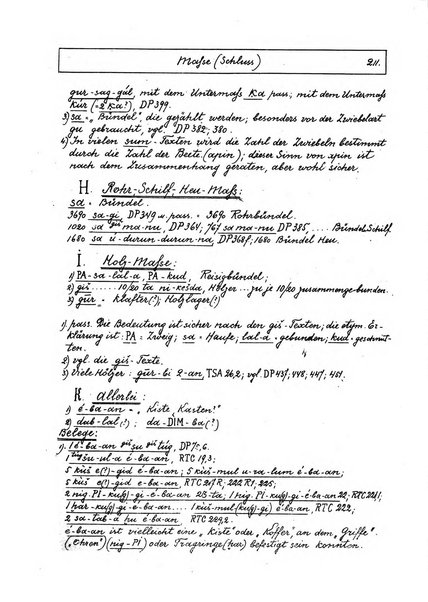 Maße (Schluss) 211.
gur-sag-gál, mit dem Untermaß Ka pass; mit dem Untermaß
Kúr (= 2 Ka?), DP 399.
3) sa = "Bündel", die gezählt werden; besonders vor der Zwiebelart
gu gebraucht, vgl. DP 382, 380.
4) In vielen sum-Texten wird die Zahl der Zwiebeln bestimmt
durch die Zahl der Beete (apin); dieser Sinn von apin ist
nach dem Zusammenhang geraten, aber wohl sicher.
H. Rohr-Schilf-Heu-Maß:
sa = Bündel.
3690 sa-gi, DP 349 u. pass. = 3690 Rohrbündel.
1020 sa giš ma-nu, DP 364; 767 sa ma-nu DP 385, .... Bündel Schilf
1680 sa ú-durun-durun-na, DP 368f; 1680 Bündel Heu.
I. Holz-Maße:
1) PA-sa-lal-a, PA-kud, Reisigbündel;
2) giš ...... 10/20 ta ni-kešda, Hölzer ... zu je 10/20 zusammengebunden.
3) gúr = Klafter(?); Holzlager(?)
1) pass. Die Bedeutung ist sicher nach den giš-Texten; die etym. Er-
klärung ist: PA = Zweig; sa = Haufe; lal-a = gebunden; kud = geschnit-
ten.
2) vgl. die giš-Texte.
3) Viele Hölzer: gúr-bi 2-an, TSA 26,2; vgl. DP 437, 448, 447; 451.
K. Allerlei:
1) é-ba-an = "Kiste Karten!"
2) dub-lal(?); da-DIM-ba(?)
Belege:
1 giš šu-ul-a é-ba-an, RTC 19,3;
5 kúš e(?)-gid é-ba-an; 5 kúš-mul u-ra-lum é-ba-an;
5 kúš e(?)-gíd é-ba-an, RTC 217 R; 222 R 1, 225;
1 har-kug-gi) é-ba-an .... 1 kúš-mul (kug-gi) é-ba-an, RTC 222;
2 sa-tab-a hu é-ba-an, RTC 229,2.
é-ba-an ist vielleicht eine "Kiste" oder "Koffer", an dem "Griffe"
("Ohren") (nig-PI) oder Tragringe (har) befestigt sein konnten.